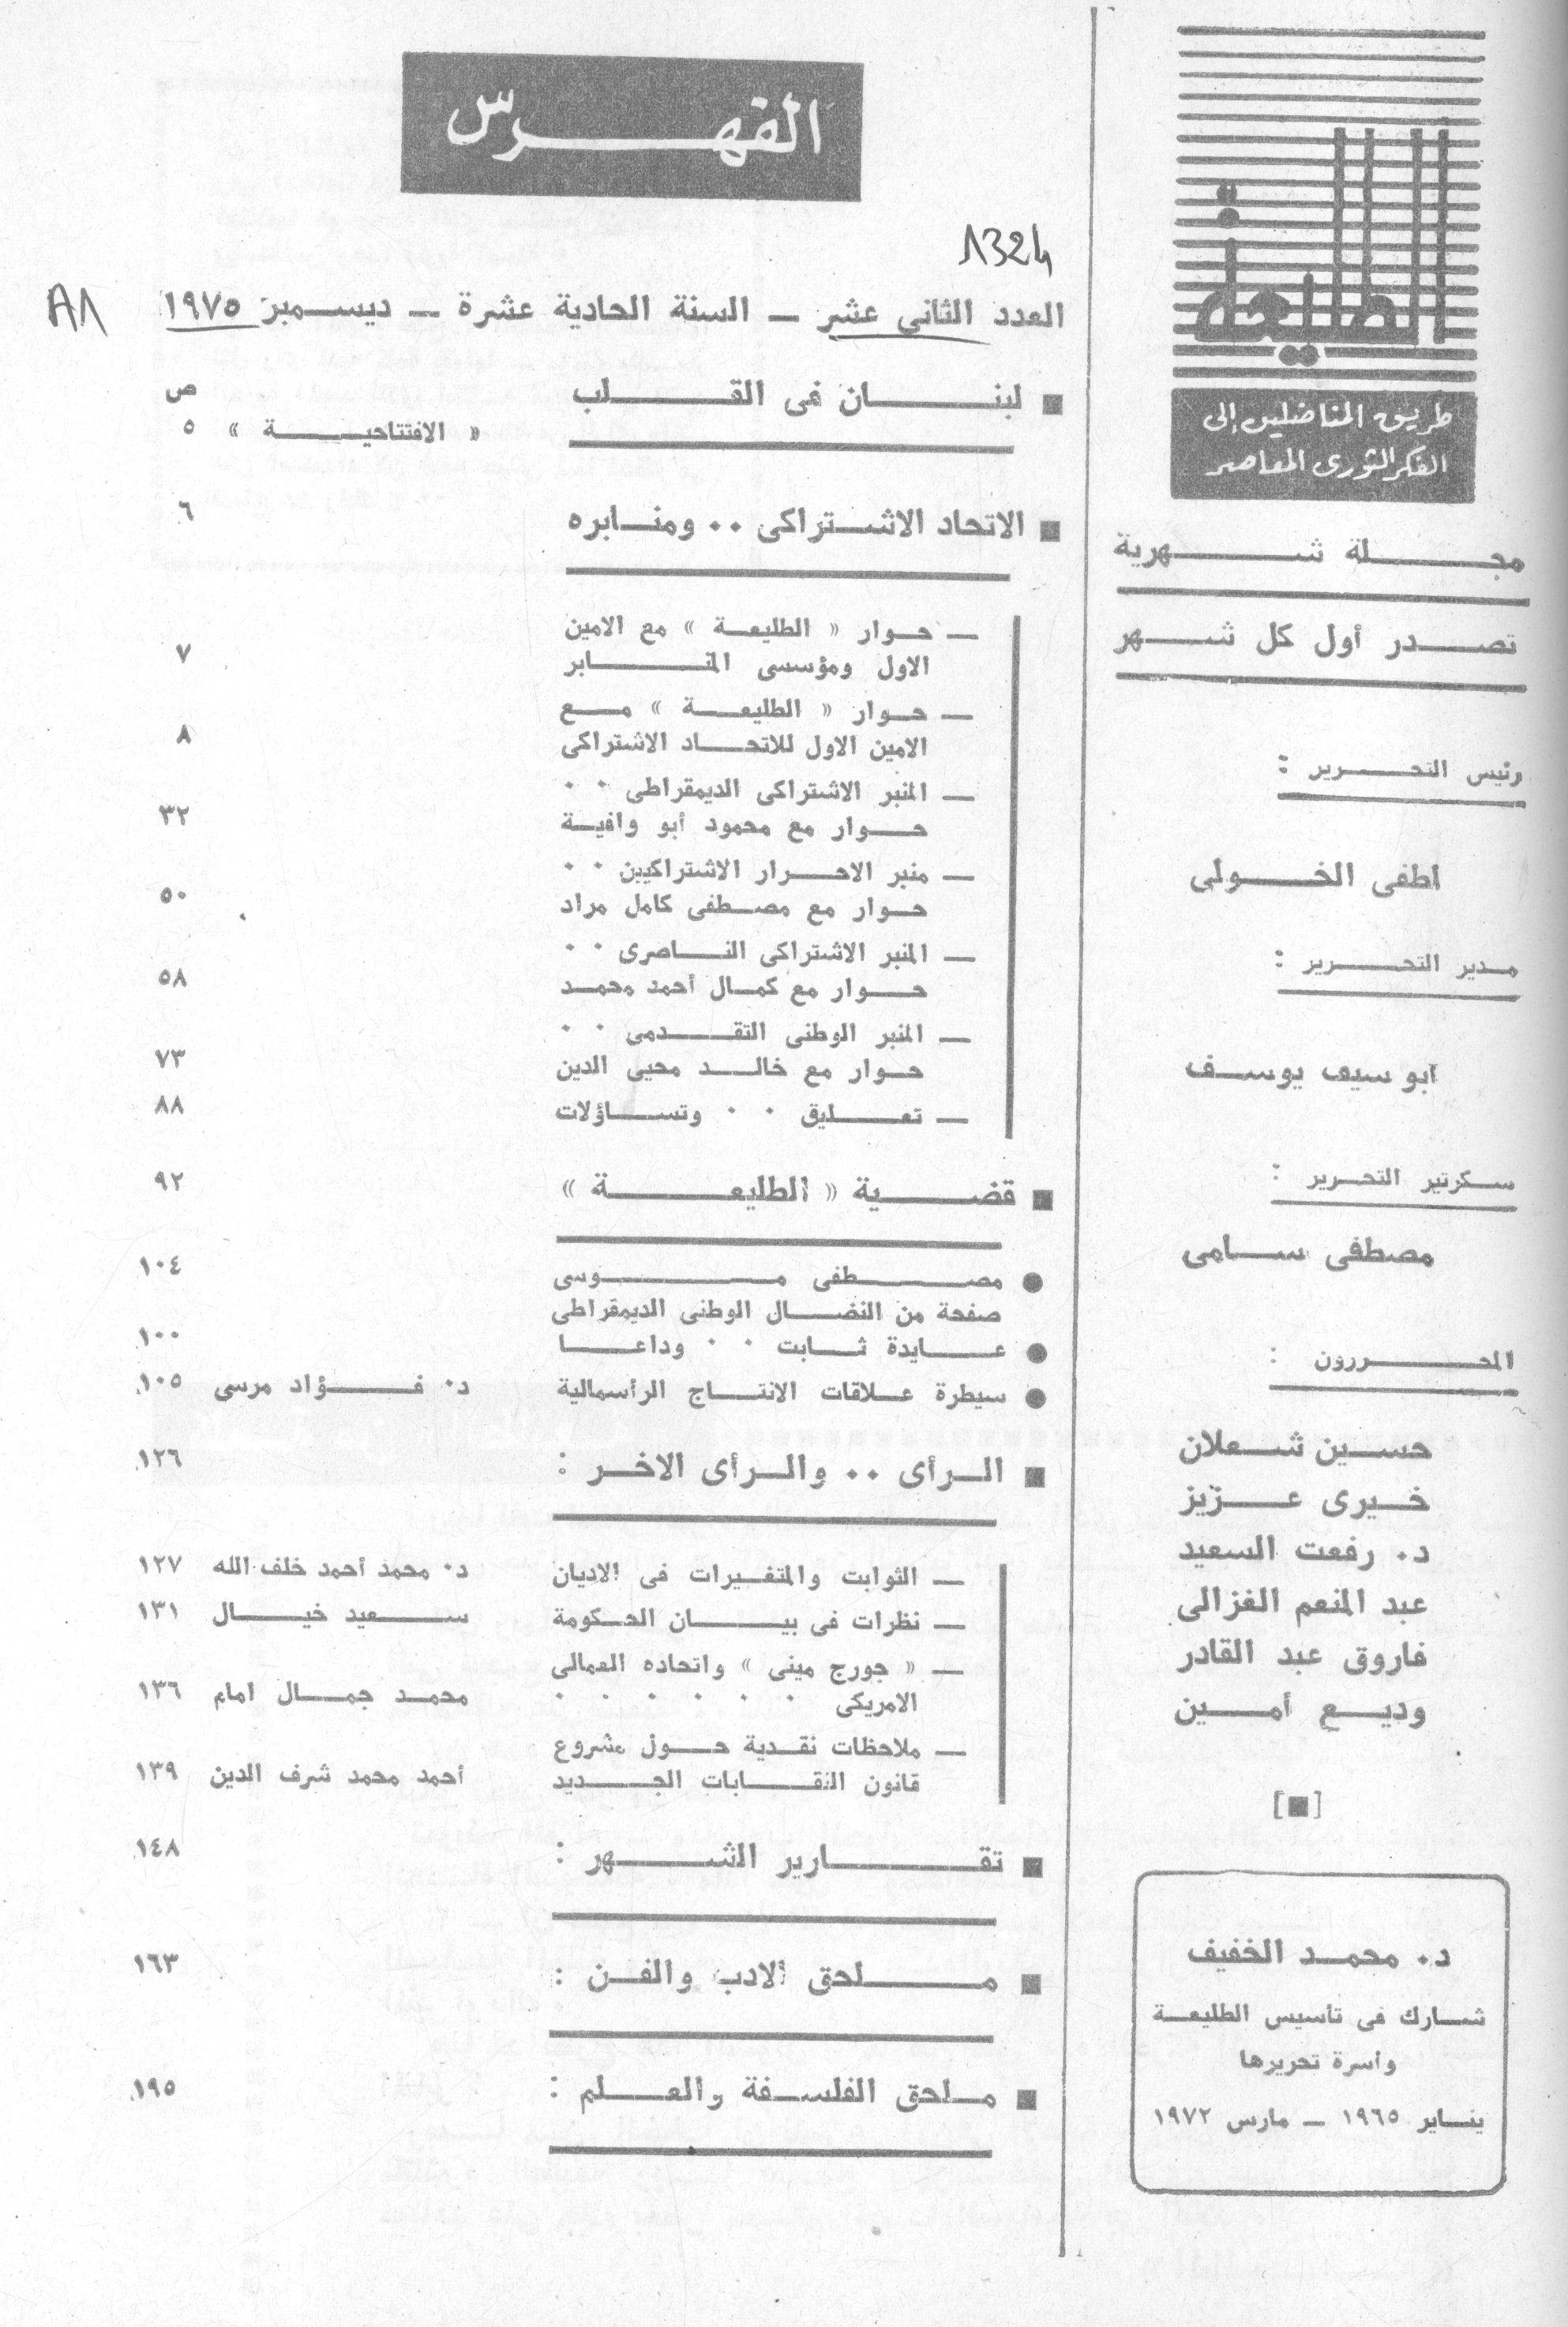 الطليعة
طريق المناضلين إلى
الفكر الثورى المعاصر
مجلة شهرية
تصدر أول كل شهر
رئيس التحرير :
لطفى الخولى
مدير التحرير :
أبو سيف يوسف
سكرتير التحرير :
مصطفى سامى
المحررون :
حسين شعلان
خيرى عزيز
د. رفعت السعيد
عبد المنعم الغزالى
فاروق عبد القادر
وديع أمين
د. محمد الخفيف
شارك فى تأسيس الطليعة
وأسرة تحريرها
يناير ١٩٦٥ — مارس ١٩٧٢
الفهرس
1324
A1
العدد الثانى عشر — السنة الحادية عشرة — ديسمبر ١٩٧٥
ص
■ لبنان فى القلب
« الافتتاحية » ٥
■ الاتحاد الاشتراكى .. ومنابره ٦
— حوار « الطليعة » مع الامين
الاول ومؤسسى المنابر ٧
— حوار « الطليعة » مع
الامين الاول للاتحاد الاشتراكى ٨
— المنبر الاشتراكى الديمقراطى . .
حوار مع محمود أبو وافية ٣٢
— منبر الاحرار الاشتراكيين . .
حوار مع مصطفى كامل مراد ٥٠
— المنبر الاشتراكى الناصرى . .
حوار مع كمال أحمد محمد ٥٨
— المنبر الوطنى التقدمى . .
حوار مع خالد محيى الدين ٧٣
— تعليق . . وتساؤلات ٨٨
■ قضية « الطليعة » ٩٢
● مصطفى موسى ١٠٤
صفحة من النضال الوطنى الديمقراطى
● عايدة ثابت . . وداعا ١٠٠
● سيطرة علاقات الانتاج الرأسمالية د. فؤاد مرسى ١٠٥
■ الرأى .. والرأى الاخر : ١٢٦
— الثوابت والمتغيرات فى الاديان د. محمد أحمد خلف الله ١٢٧
— نظرات فى بيان الحكومة سعيد خيال ١٣١
— « جورج مينى » واتحاده العمالى
الامريكى . . . . . . محمد جمال امام ١٣٦
— ملاحظات نقدية حول مشروع
قانون النقابات الجديد أحمد محمد شرف الدين ١٣٩
■ تقارير الشهر : ١٤٨
■ ملحق الادب والفن : ١٦٣
■ ملحق الفلسفة والعلم : ١٩٥